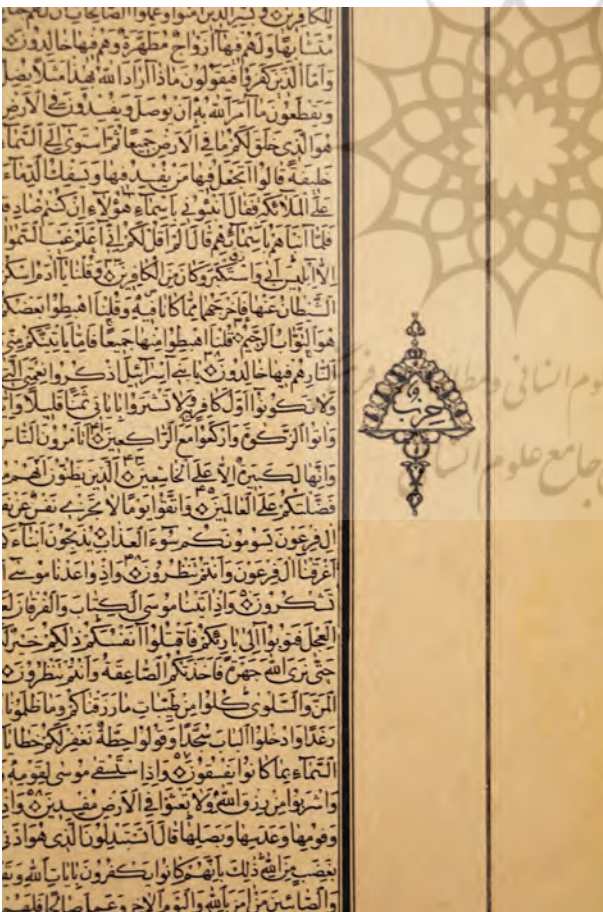 للكافرين وبشر الذين آمنوا وعملوا الصالحات ان لهم
متشابها ولهم فيها ازواج مطهرة وهم فيها خالدون
واما الذين كفروا فيقولون ماذا اراد الله بهذا مثلا يضل
ويقطعون ما امر الله به ان يوصل ويفسدون في الارض
هو الذي خلق لكم ما في الارض جميعا ثم استوى الى السماء
خليفة قالوا اتجعل فيها من يفسد فيها ويسفك الدماء
على الملائكة فقال انبئوني باسماء هؤلاء ان كنتم صادق
فلما انباهم باسمائهم قال الم اقل لكم اني اعلم غيب السموا
الا ابليس ابى واستكبر وكان من الكافرين وقلنا يا ادم اسكن
الشيطان عنها فاخرجهما مما كانا فيه وقلنا اهبطوا بعضكم
هو التواب الرحيم قلنا اهبطوا منها جميعا فاما ياتينكم مني
النار هم فيها خالدون يا بني اسرائيل اذكروا نعمتي التي
ولا تكونوا اول كافر به ولا تشتروا باياتي ثمنا قليلا وا
واتوا الزكوة واركعوا مع الراكعين اتامرون الناس
وانها لكبيرة الا على الخاشعين الذين يظنون انهم م
فضلتكم على العالمين واتقوا يوما لا تجزي نفس عن نف
ال فرعون يسومونكم سوء العذاب يذبحون ابناءك
اغرقنا ال فرعون وانتم تنظرون واذ واعدنا موسى ا
تشكرون واذ اتينا موسى الكتاب والفرقان لع
العجل فتوبوا الى بارئكم فاقتلوا انفسكم ذلكم خير ل
حتى نرى الله جهرة فاخذتكم الصاعقة وانتم تنظرون
المن والسلوى كلوا من طيبات ما رزقناكم وما ظلمونا
رغدا وادخلوا الباب سجدا وقولوا حطة نغفر لكم خطايا
السماء بما كانوا يفسقون واذ استسقى موسى لقومه
واشربوا من رزق الله ولا تعثوا في الارض مفسدين واذ
وفومها وعدسها وبصلها قال اتستبدلون الذي هو ادنى
بغضب من الله ذلك بانهم كانوا يكفرون بايات الله ويق
والصابئين من امن بالله واليوم الاخر وعمل صالحا فلهم
حزب
جامع علوم انسانی